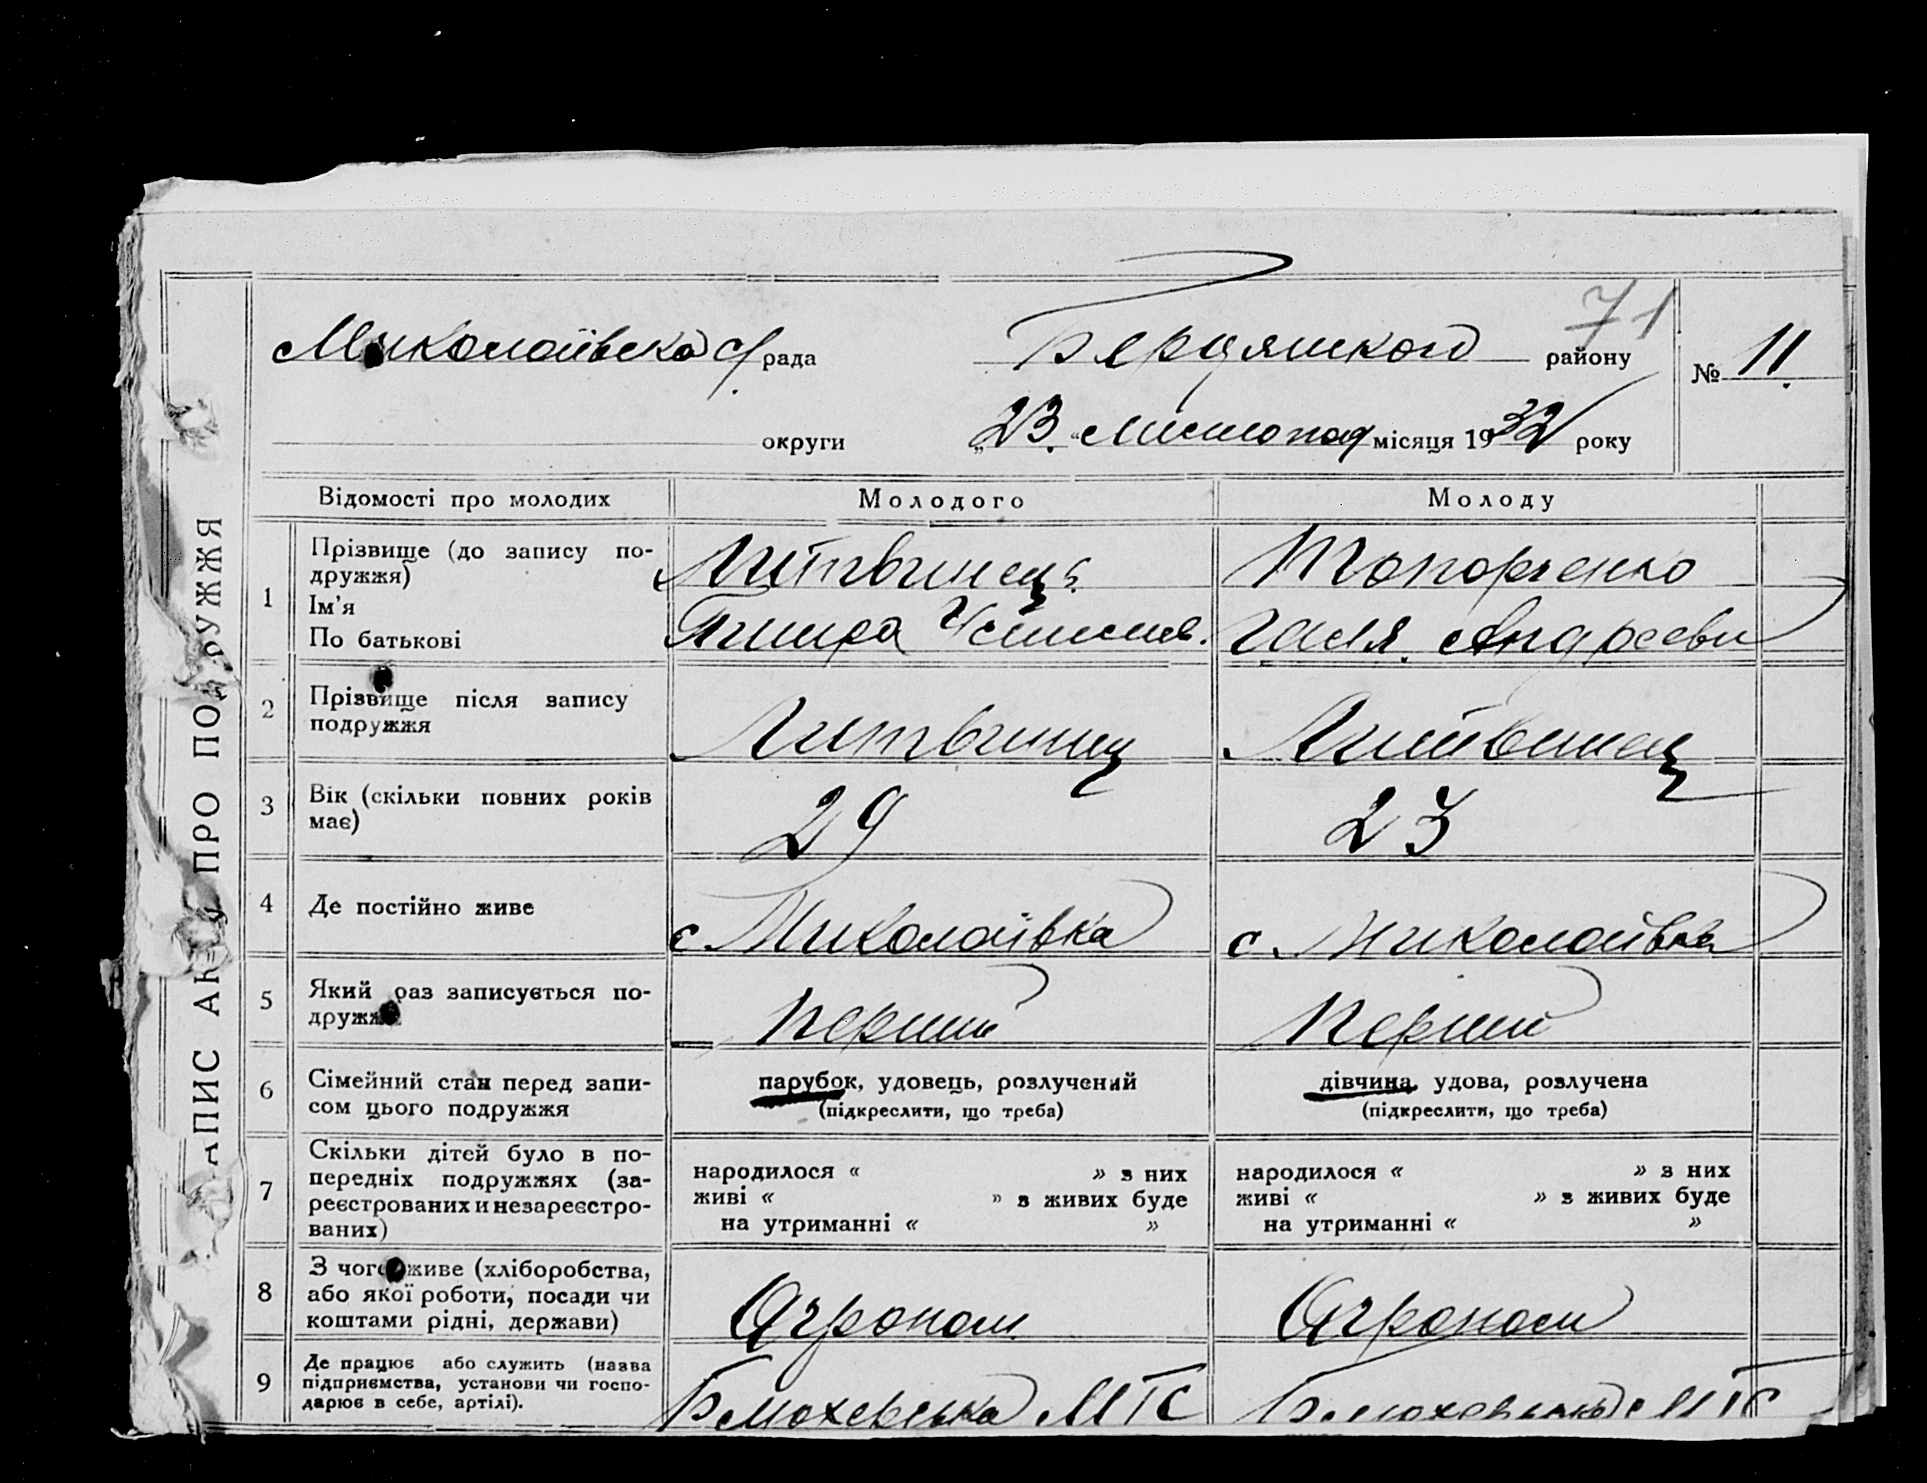 71
Миколаївська с/рада Бердянського району № 11.
округи „23" Листопад місяця 1932 року
АПИС АК ПРО ПОДРУЖЖЯ
Відомості про молодих Молодого Молоду
1 Прізвище (до запису по-
дружжя) Литвинец Топорченко
Ім'я
По батькові Галя Андреевн
2 Прізвище після запису
подружжя Литвинец Литвинец
3 Вік (скільки повних років
має) 29 23
4 Де постійно живе с. Миколаївка с. Миколаївка
5 Який раз записується по-
дружжя Перший Перший
6 Сімейний стан перед запи-
сом цього подружжя парубок, удовець, розлучений дівчина, удова, розлучена
(підкреслити, що треба) (підкреслити, що треба)
7 Скільки дітей було в по-
передніх подружжях (за-
реєстрованих и незареєстро-
ваних)
народилося « » з них народилося « » з них
живі « » з живих буде живі « » з живих буде
на утриманні « » на утриманні « »
8 З чого живе (хліборобства,
або якої роботи, посади чи
коштами рідні, держави) Агроном Агроном
9 Де працює або служить (назва
підприємства, установи чи госпо-
дарює в себе, артілі). МТС МТС